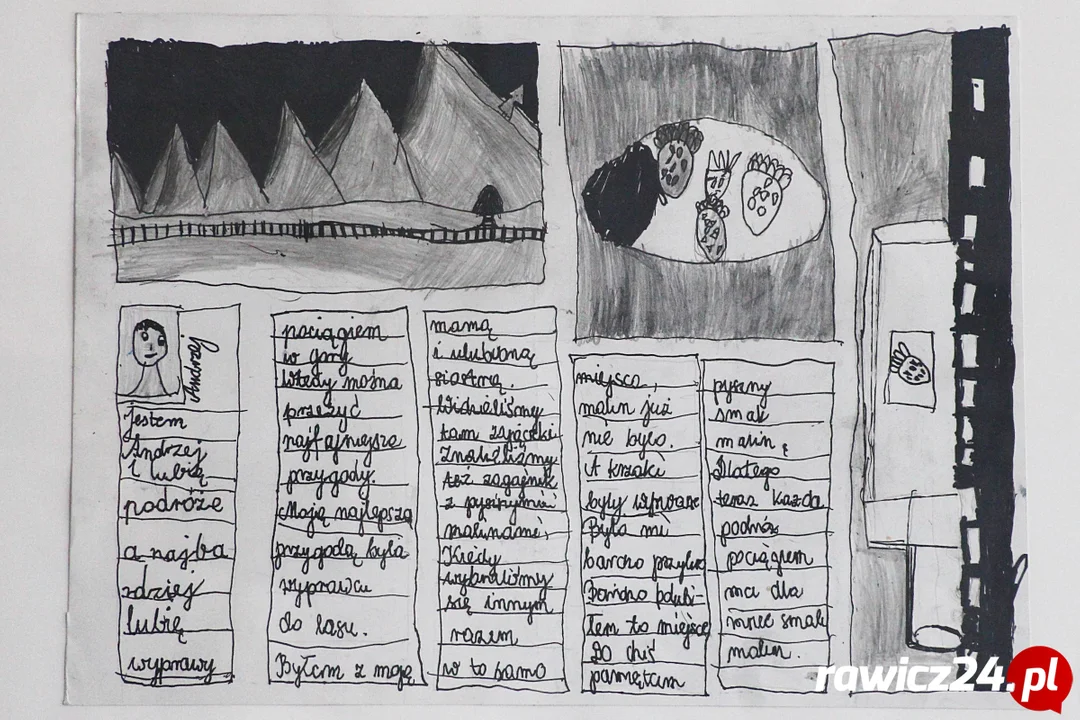 Andrzej
Jestem
Andrzej
i lubię
podróże
a najba
rdziej
lubię
wyprawy
pociągiem
w góry
Wtedy można
przeżyć
najfajniejsze
przygody.
Moją najlepszą
przygodą była
wyprawa
do lasu.
Byłem z moją
mamą
i ulubioną
siostrą.
Widzieliśmy
tam zajączki
Znaleźliśmy
też zagajnik
z pysznymi
malinami.
Kiedy
wybraliśmy
się innym
razem
w to samo
miejsce,
malin już
nie było.
A krzaki
były wyrwane
Było mi
bardzo przykro
Bardzo polubi-
łem to miejsce
Do dziś
pamiętam
pyszny
smak
malin
Dlatego
teraz każda
podróż
pociągiem
ma dla
mnie smak
malin.
rawicz24.pl